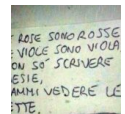 ROSE SONO ROSSE
E VIOLE SONO VIOLA
ON SO' SCRIVERE
ESIE,
AMMI VEDERE LE
ETTE.